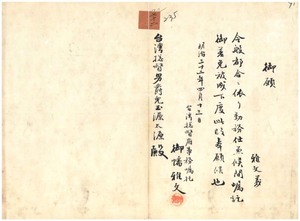 御願
雅文義
今般都合ニ依リ勤務仕兼候間嘱託
御差免被成下度此段奉願候也
明治三十三年四月十三日
台湾総督府事務嘱託
御幡雅文
台湾総督男爵児玉源太郎殿
235